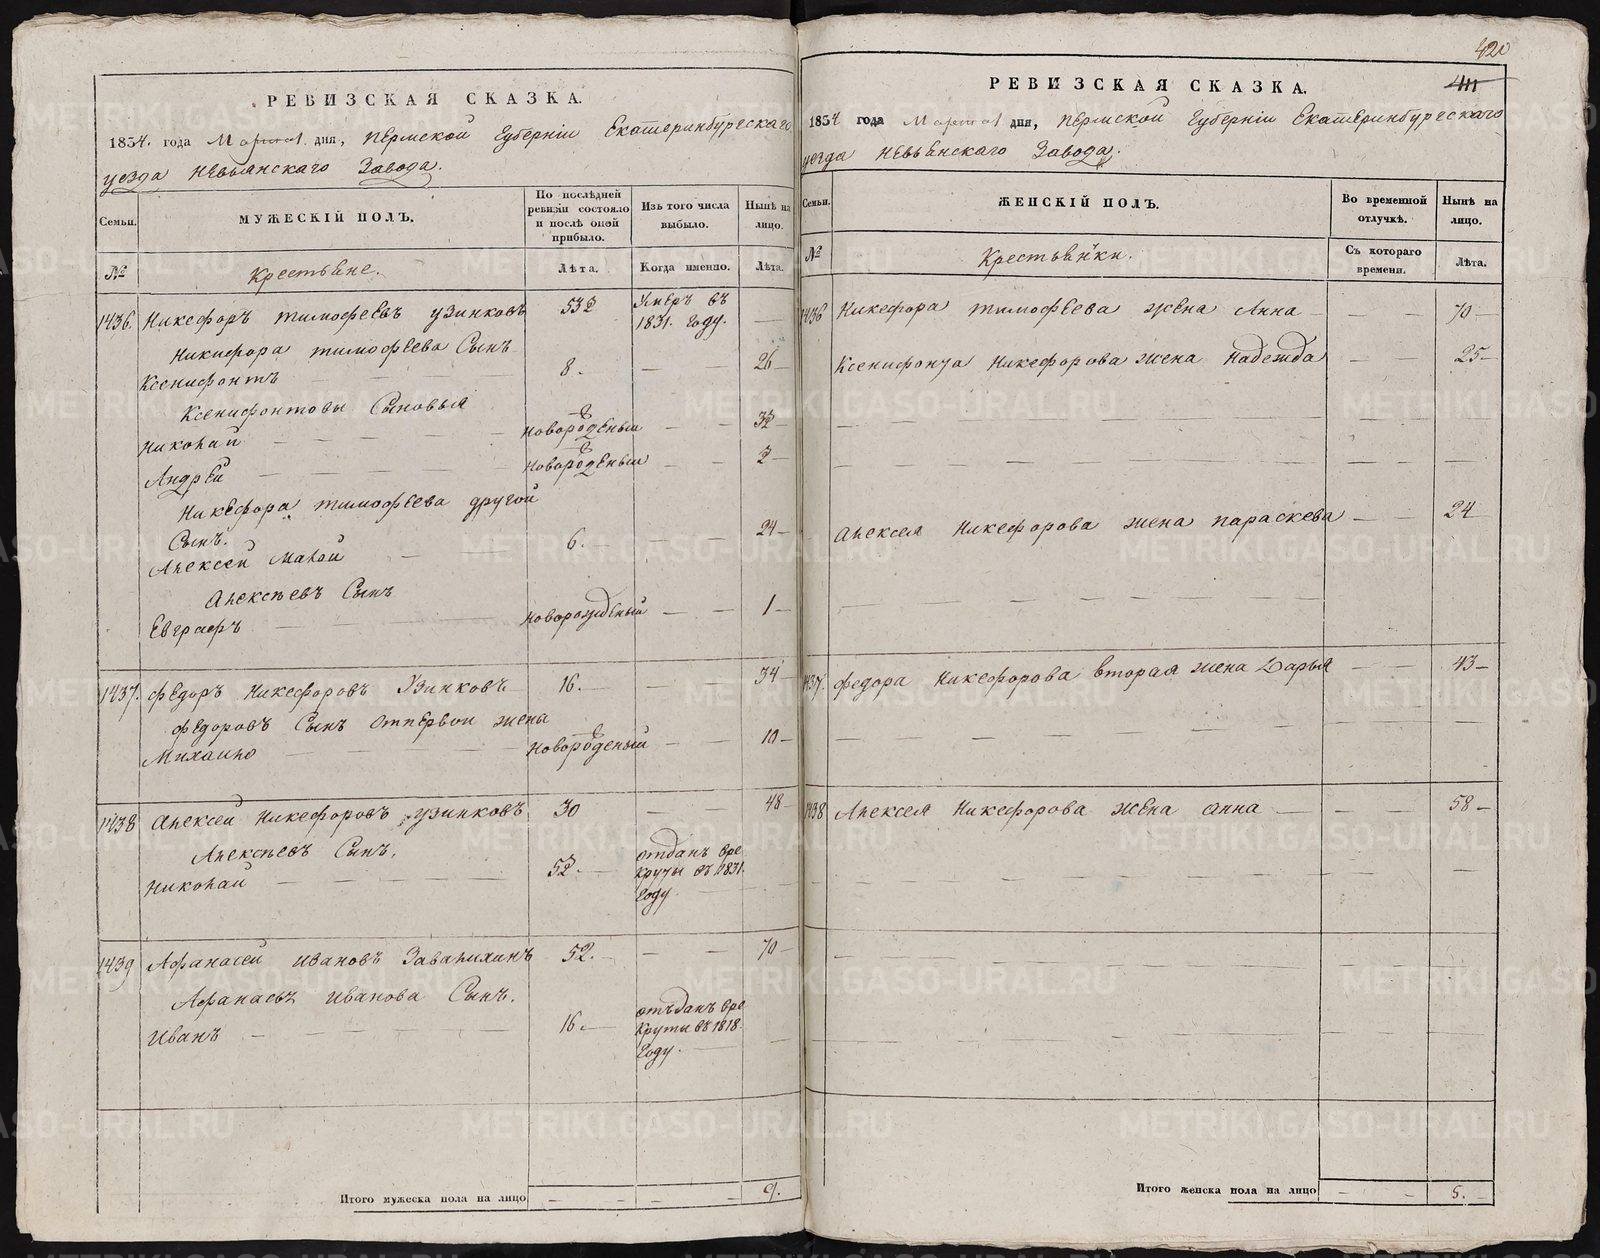 РЕВИЗСКАЯ СКАЗКА.
1834. года Марта 1 дня, Пермской Губерніи Екатеринбургскаго
уезда Невьянскаго Завода.
Семьи. МУЖЕСКІЙ ПОЛЪ. По послѣдней ревизіи состояло и послѣ оной прибыло. Изъ того числа выбыло. Нынѣ на лицо.
№ Крестьяне. Лѣта. Когда именно. Лѣта.
1436. Никефоръ Тимофеевъ Узинковъ 53 Умеръ въ
1831. Году. —
Никифора Тимофеева Сынъ
Ксенифонтъ 8. — — 26 —
Ксенифонтовы Сыновья
Николай Новорожденый — — —
Андрей Новорожденый — — 2 —
Никефора Тимофеева другой
Сынъ.
Алексей Малой 6. — 24 —
Алексѣевъ Сынъ
Евграфъ Новорожденый — — 1 —
1437. Федоръ Никефоровъ Узинковъ 16. — — 34
Федоровъ Сынъ отпервои жены
Михаило Новорожденый — — 10 —
1438 Алексеи Никефоровъ Узинковъ 30 — — 48 —
Алексѣевъ Сынъ.
Николаи отданъ вре
круты въ 1831.
Году.
1439 Афанасеи Ивановъ Завалихинъ 52. — — 70 —
Афанасья Иванова Сынъ.
Иванъ 16. — отъданъ вре
круты въ 1818.
Году.
Итого мужеска пола на лицо — — 9.
420
411
РЕВИЗСКАЯ СКАЗКА.
1834 года Марта 1 дня, Пермской Губерніи Екатеринбургскаго
уезда Невьянскаго Завода.
Семьи. ЖЕНСКІЙ ПОЛЪ. Во временной отлучкѣ. Нынѣ на лицо.
№ Крестьянки. Съ котораго времени. Лѣта.
1436 Никефора Тимофеева жена Анна — — 70 —
Ксенифонта Никефорова жена Надежда — — 25 —
Алексея Никефорова жена Параскева — — 24
1437. Федора Никефорова вторая жена Дарья — — 43 —
1438 Алексея Никефорова жена Анна — — 58 —
Итого женска пола на лицо — — 5.
METRIKI.GASO-URAL.RU